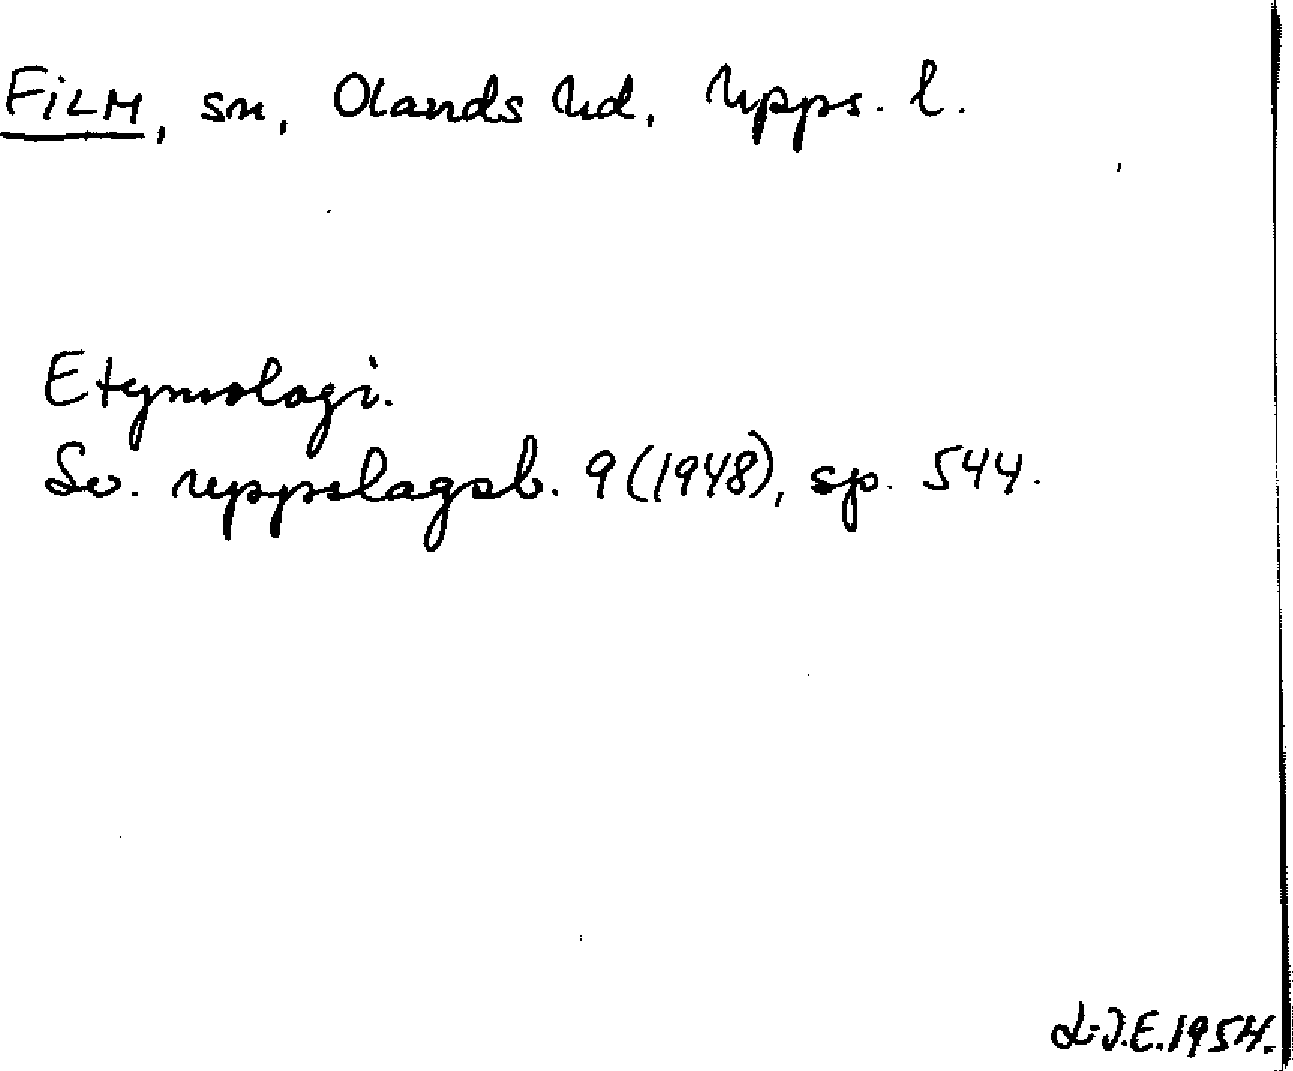 FiLM, sn, Olands hd, Upps. l.
Etymologi.
Sv. uppslagsb. 9 (1948), sp. 544.
L-J.E. 1954.